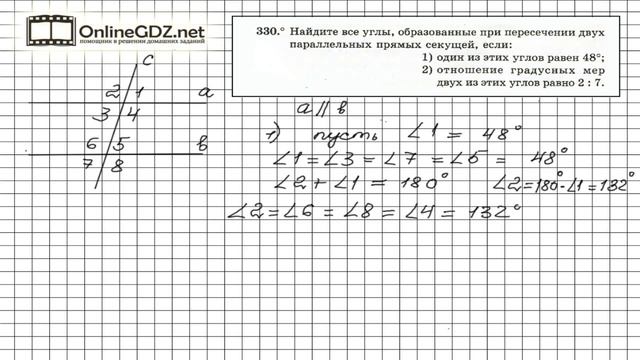 OnlineGDZ.net
помощник в решении домашних заданий
330.° Найдите все углы, образованные при пересечении двух
параллельных прямых секущей, если:
1) один из этих углов равен 48°;
2) отношение градусных мер
двух из этих углов равно 2 : 7.
c
2 1 a
3 4
6 5 в
7 8
a || в
1) пусть ∠1 = 48°
∠1 = ∠3 = ∠7 = ∠5 = 48°
∠2 + ∠1 = 180° ∠2 = 180° - ∠1 = 132°
∠2 = ∠6 = ∠8 = ∠4 = 132°